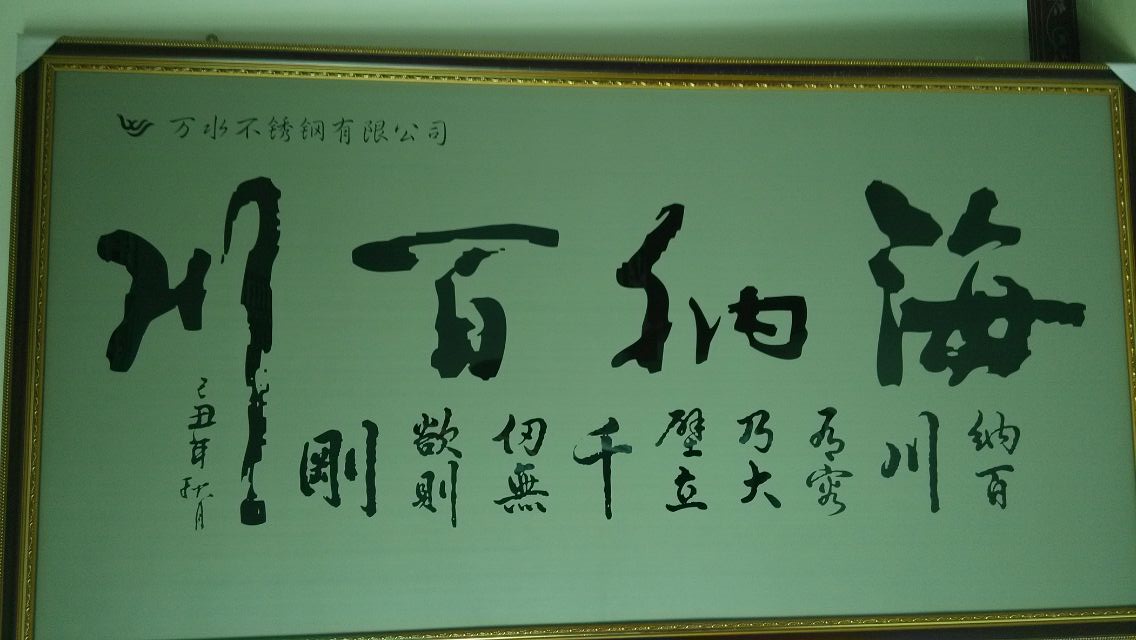 万水不锈钢有限公司
海纳百川
纳百
川
有容
乃大
壁立
千
仞無
欲則
剛
己丑年秋月